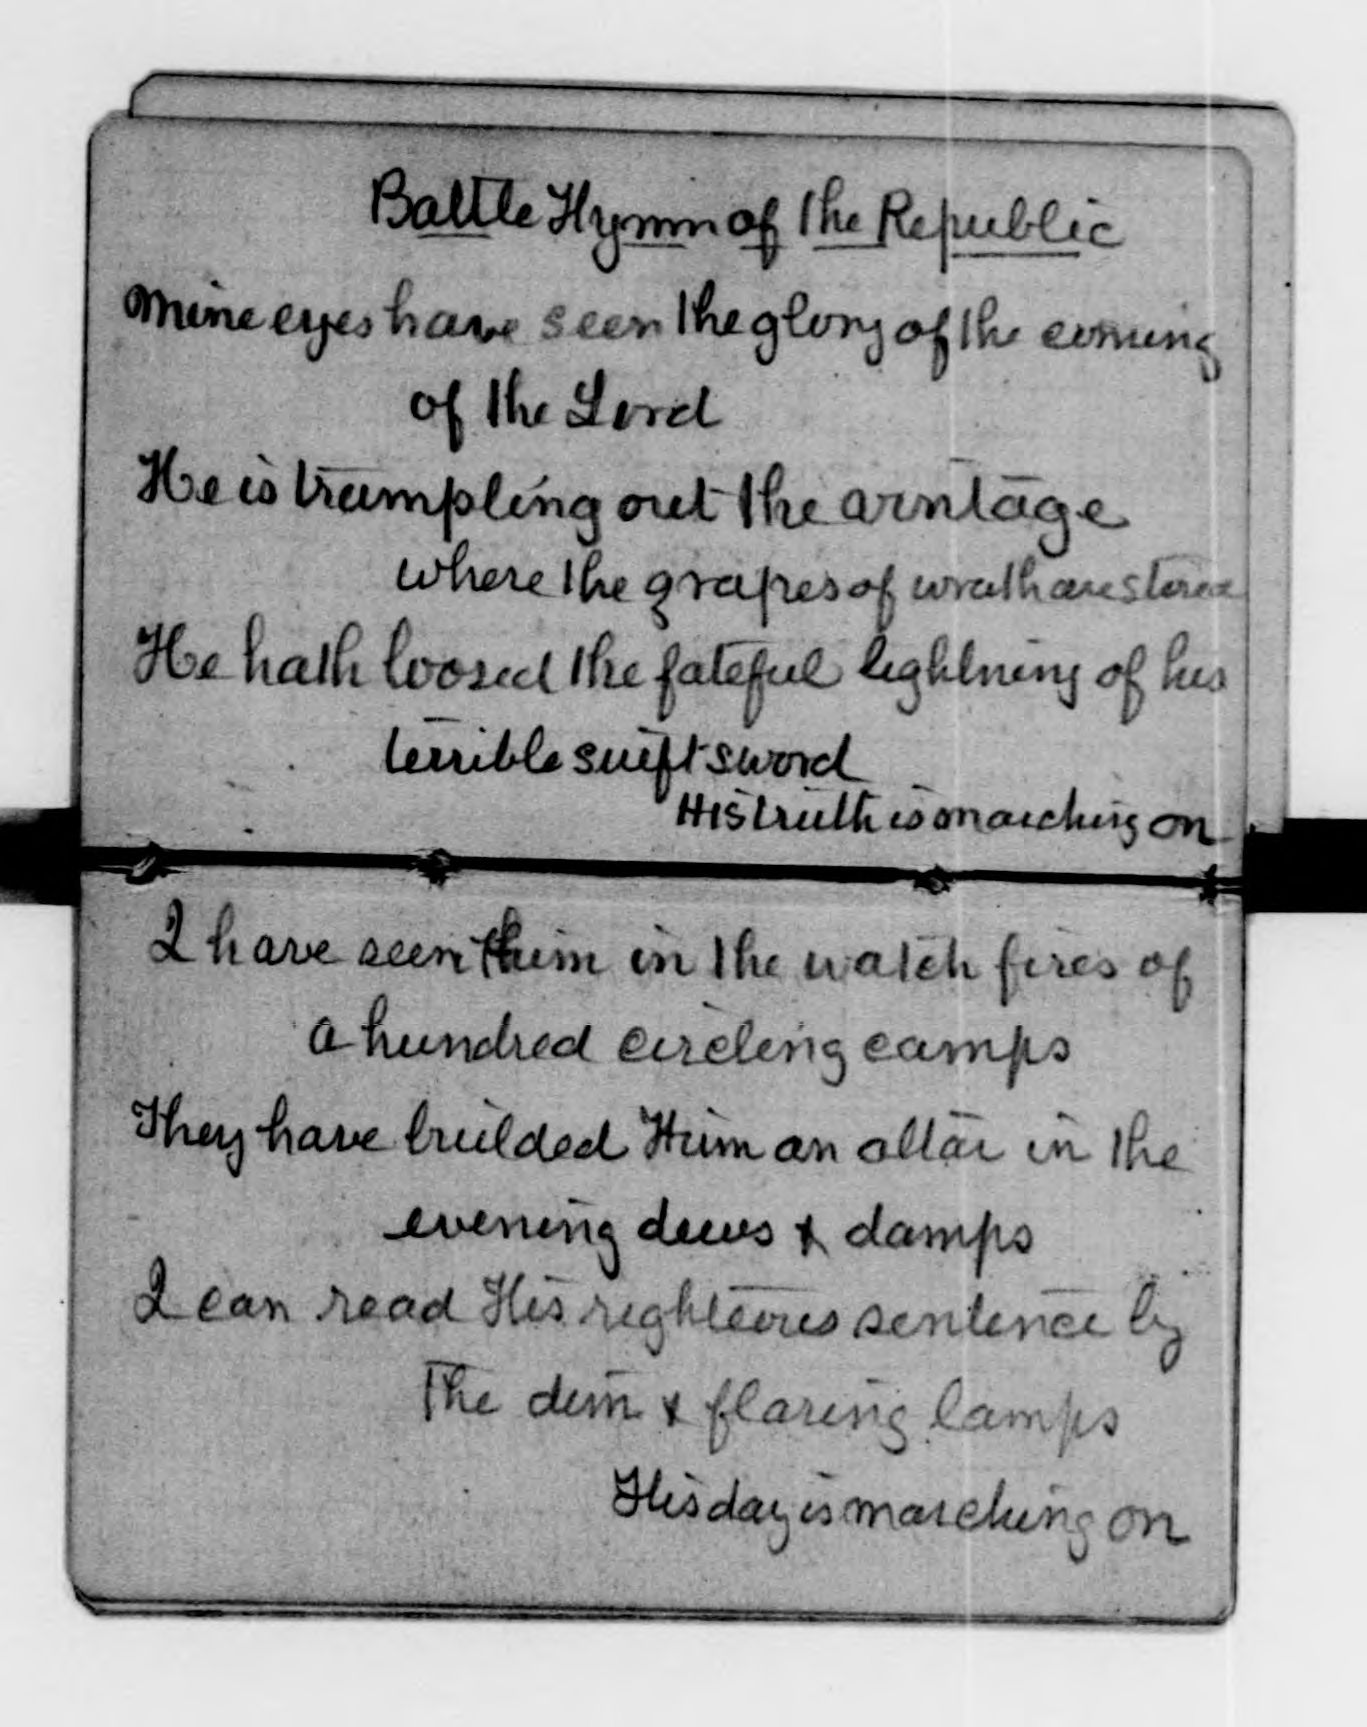 Battle Hymn of the Republic
Mine eyes have seen the glory of the coming
of the Lord
He is trampling out the vintage
where the grapes of wrath are stored
He hath loosed the fateful lightning of his
terrible swift sword
His truth is marching on
I have seen Him in the watch fires of
a hundred circling camps
They have builded Him an altar in the
evening dews & damps
I can read His righteous sentence by
the dim & flaring lamps
His day is marching on